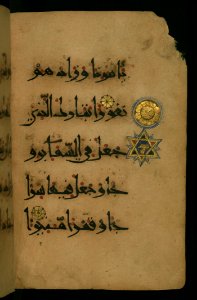 تامرنا وزادهم
نفورا تبارك الذى
جعل فى السما برو
جا وجعل فيها سرا
جا وقمرا منيرا